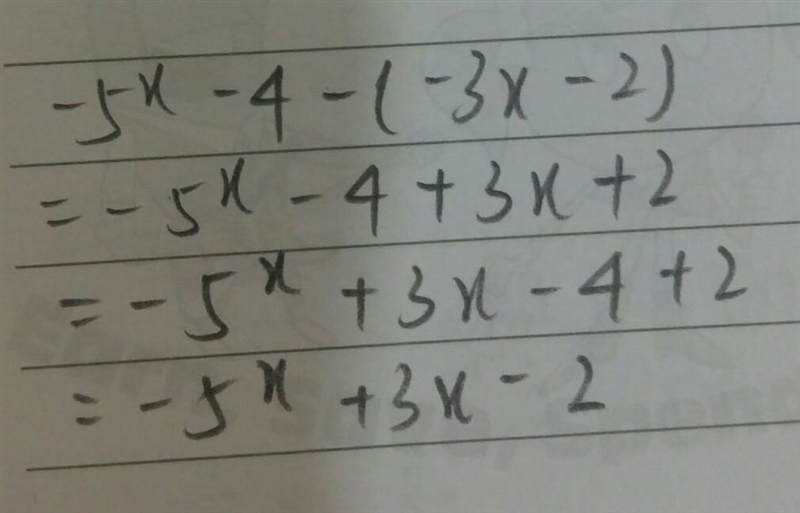 -5^x - 4 - (-3x - 2)
= -5^x - 4 + 3x + 2
= -5^x + 3x - 4 + 2
= -5^x + 3x - 2